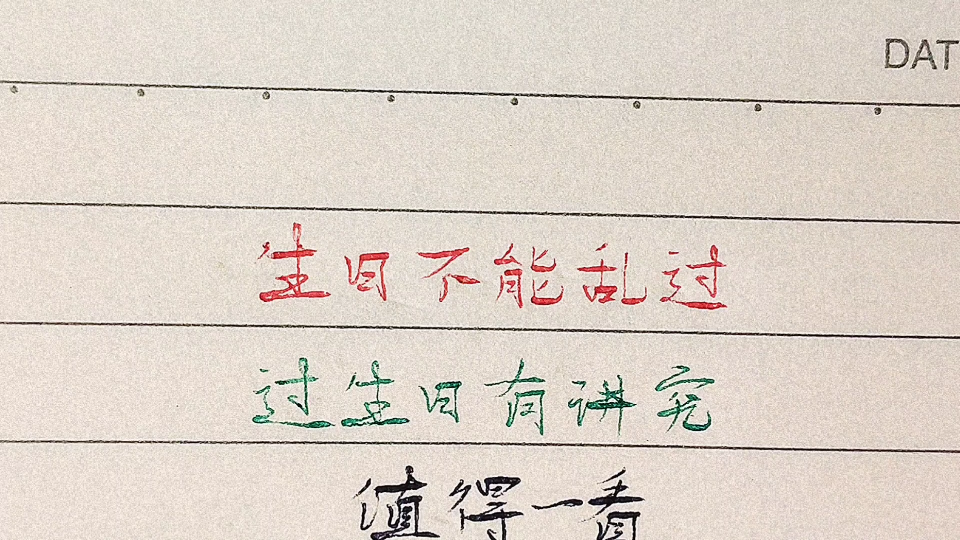 DAT
生日不能乱过
过生日有讲究
值得一看